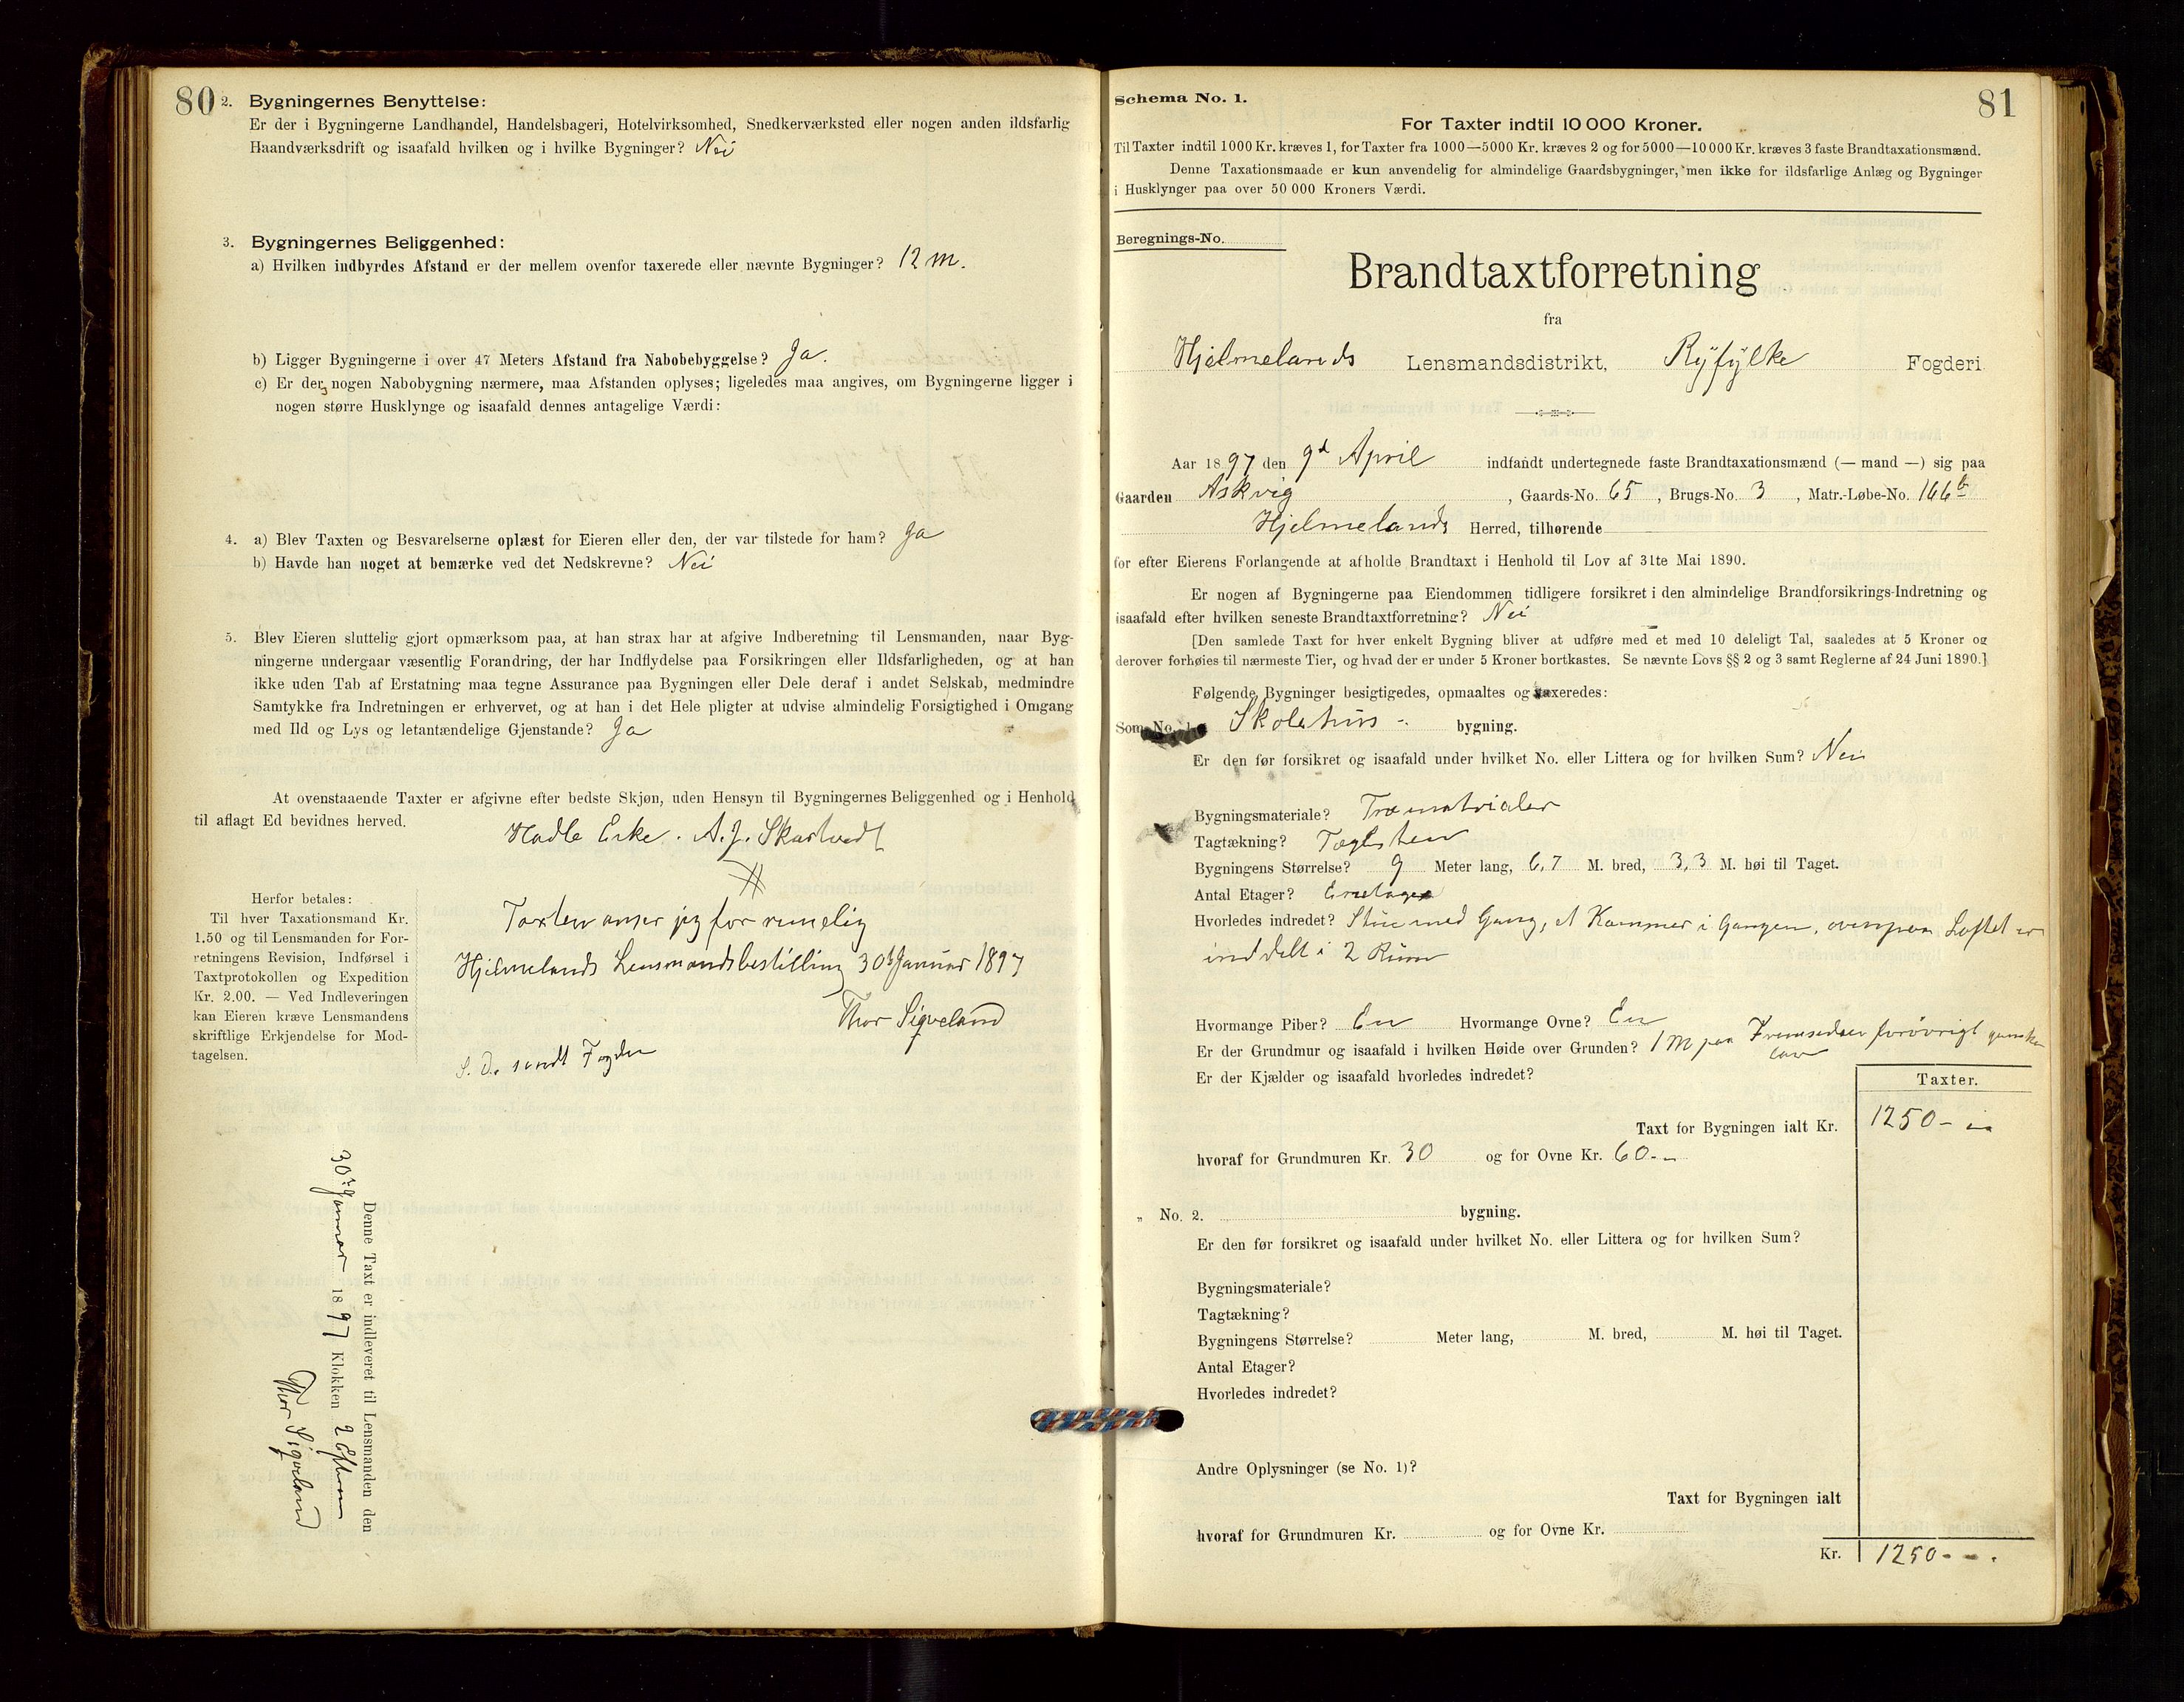 80
2. Bygningernes Benyttelse:
Er der i Bygningerne Landhandel, Handelsbageri, Hotelvirksomhed, Snedkerværksted eller nogen anden ildsfarlig
Haandværksdrift og isaafald hvilken og i hvilke Bygninger? Nei
3. Bygningernes Beliggenhed:
a) Hvilken indbyrdes Afstand er der mellem ovenfor taxerede eller nævnte Bygninger? 12 m.
b) Ligger Bygningerne i over 47 Meters Afstand fra Nabobebyggelse? Ja.
c) Er der nogen Nabobygning nærmere, maa Afstanden oplyses; ligeledes maa angives, om Bygningerne ligger i
nogen større Husklynge og isaafald dennes antagelige Værdi:
4. a) Blev Taxten og Besvarelserne oplæst for Eieren eller den, der var tilstede for ham? Ja
b) Havde han noget at bemærke ved det Nedskrevne? Nei
5. Blev Eieren sluttelig gjort opmærksom paa, at han strax har at afgive Indberetning til Lensmanden, naar Byg-
ningerne undergaar væsentlig Forandring, der har Indflydelse paa Forsikringen eller Ildsfarligheden, og at han
ikke uden Tab af Erstatning maa tegne Assurance paa Bygningen eller Dele deraf i andet Selskab, medmindre
Samtykke fra Indretningen er erhvervet, og at han i det Hele pligter at udvise almindelig Forsigtighed i Omgang
med Ild og Lys og letantændelige Gjenstande? Ja
At ovenstaaende Taxter er afgivne efter bedste Skjøn, uden Hensyn til Bygningernes Beliggenhed og i Henhold
til aflagt Ed bevidnes herved.
Hadle Eske. A. J. Skartvedt
Herfor betales:
Til hver Taxationsmand Kr.
1.50 og til Lensmanden for For-
retningens Revision, Indførsel i
Taxtprotokollen og Expedition
Kr. 2.00. — Ved Indleveringen
kan Eieren kræve Lensmandens
skriftlige Erkjendelse for Mod-
tagelsen.
Taxten anser jeg for rimelig
Hjelmelands Lensmandsbestilling 30te Januar 1897
Thor Sigveland
S. D. sendt Fogden
Denne Taxt er indleveret til Lensmanden den
30te Januar 1897 Klokken 2 Efterm
Thor Sigveland
81
Schema No. 1.
For Taxter indtil 10 000 Kroner.
Til Taxter indtil 1000 Kr. kræves 1, for Taxter fra 1000—5000 Kr. kræves 2 og for 5000—10 000 Kr. kræves 3 faste Brandtaxationsmænd.
Denne Taxationsmaade er kun anvendelig for almindelige Gaardsbygninger, men ikke for ildsfarlige Anlæg og Bygninger
i Husklynger paa over 50 000 Kroners Værdi.
Beregnings-No.
Brandtaxtforretning
fra
Hjelmelands Lensmandsdistrikt, Ryfylke Fogderi
Aar 1897 den 9d April indfandt undertegnede faste Brandtaxationsmænd (— mand —) sig paa
Gaarden Askvig, Gaards-No. 65, Brugs-No. 3, Matr.-Løbe-No. 166 b
Hjelmelands Herred, tilhørende
for efter Eierens Forlangende at afholde Brandtaxt i Henhold til Lov af 31te Mai 1890.
Er nogen af Bygningerne paa Eiendommen tidligere forsikret i den almindelige Brandforsikrings-Indretning og
isaafald efter hvilken seneste Brandtaxtforretning? Nei
[Den samlede Taxt for hver enkelt Bygning bliver at udføre med et med 10 deleligt Tal, saaledes at 5 Kroner og
derover forhøies til nærmeste Tier, og hvad der er under 5 Kroner bortkastes. Se nævnte Lovs §§ 2 og 3 samt Reglerne af 24 Juni 1890.]
Følgende Bygninger besigtigedes, opmaaltes og taxeredes:
Som No. 1 Skolehus - bygning.
Er den før forsikret og isaafald under hvilket No. eller Littera og for hvilken Sum? Nei
Bygningsmateriale? Træmatrialer
Tagtækning? Taglsten
Bygningens Størrelse? 9 Meter lang, 6,7 M. bred, 3,3 M. høi til Taget.
Antal Etager? Enetages
Hvorledes indredet? Stue med Gang, et Kammer i Gangen, ovenpaa Loftet er
inddelt i 2 Rum
Hvormange Piber? En Hvormange Ovne? En
Er der Grundmur og isaafald i hvilken Høide over Grunden? 1 M paa Fremsiden forøvrigt ganske
lav
Er der Kjælder og isaafald hvorledes indredet?
Taxter.
Taxt for Bygningen ialt Kr. 1250 -
hvoraf for Grundmuren Kr. 30 og for Ovne Kr. 60. -
„ No. 2. bygning.
Er den før forsikret og isaafald under hvilket No. eller Littera og for hvilken Sum?
Bygningsmateriale?
Tagtækning?
Bygningens Størrelse? Meter lang, M. bred, M. høi til Taget.
Antal Etager?
Hvorledes indredet?
Andre Oplysninger (se No. 1)?
Taxt for Bygningen ialt
hvoraf for Grundmuren Kr. og for Ovne Kr.
Kr. 1250 - - .